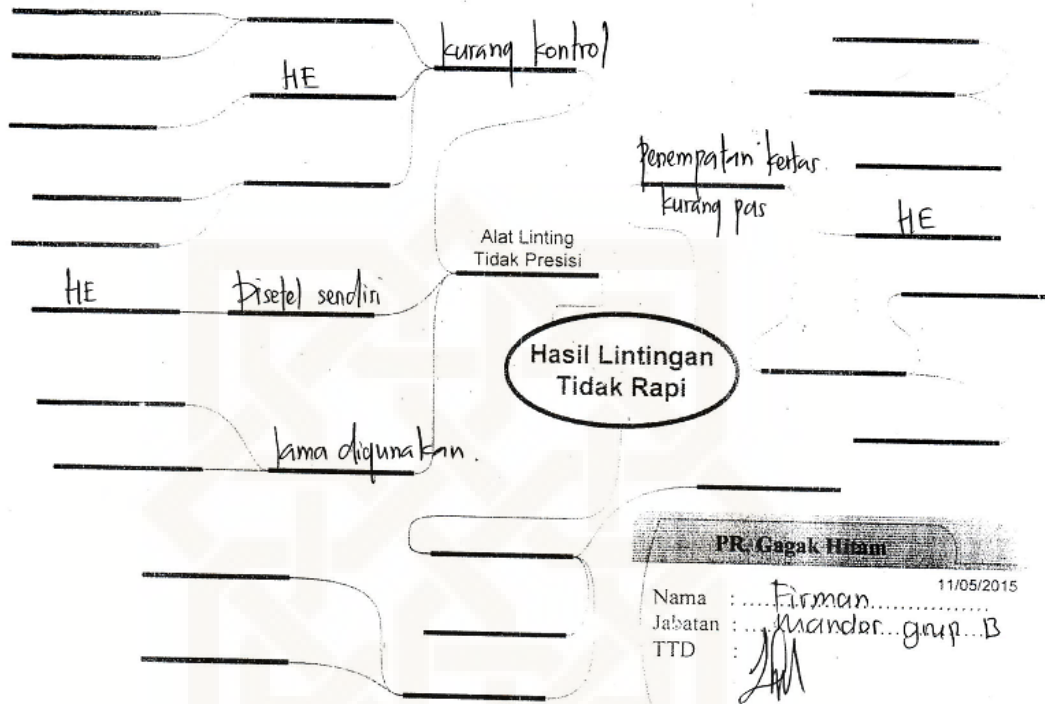 kurang kontrol
HE
Penempatan kertas
kurang pas
HE
Alat Linting
Tidak Presisi
HE
Disetel sendiri
Hasil Lintingan
Tidak Rapi
lama digunakan.
PR. Gagak Hitam
11/05/2015
Nama : Firman
Jabatan : Mandor grup B
TTD :